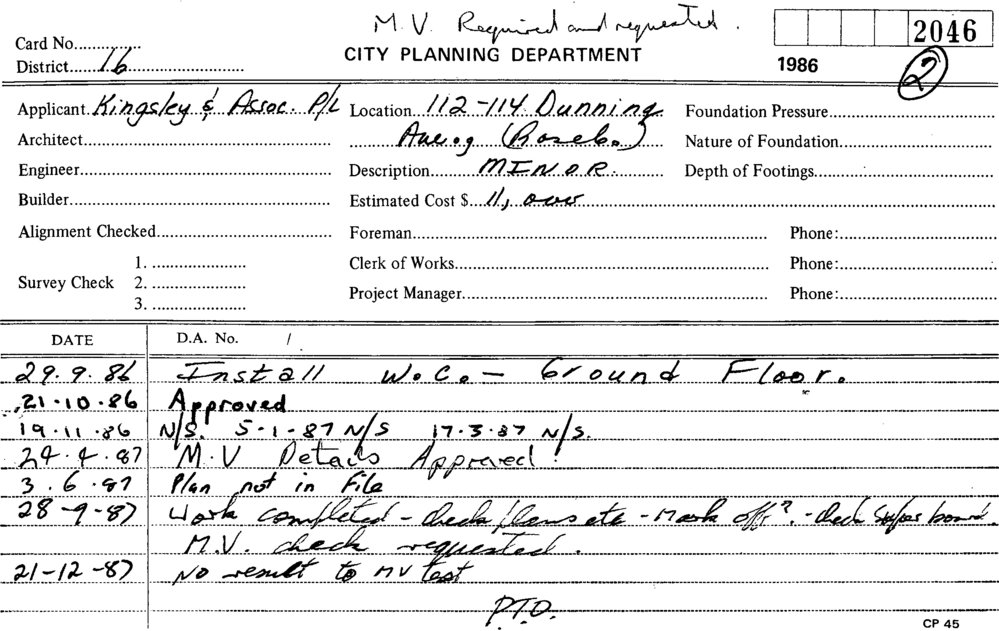 M.V. Required and requested.
2046
Card No.
District 16
CITY PLANNING DEPARTMENT
1986
2
Applicant Kingsley & Assoc. P/L
Location 112-114 Dunning
Foundation Pressure
Architect
(Roseb.)
Nature of Foundation
Engineer
Description MINOR.
Depth of Footings
Builder
Estimated Cost $ 11,000
Alignment Checked
Foreman
Phone:
Survey Check
1.
2.
3.
Clerk of Works
Phone:
Project Manager
Phone:
DATE
D.A. No. /
29.9.86 Install W.C. - Ground Floor.
21.10.86 Approved
19.11.86 N/S. 5-1-87 N/S 17-3-87 N/S.
24.4.87 M.V Details Approved!
3.6.87 Plan not in File
28-9-87 Work completed - check plans etc - Mark off?. - check board.
M.V. check requested.
21-12-87 No result to MV test
P.T.O.
CP 45